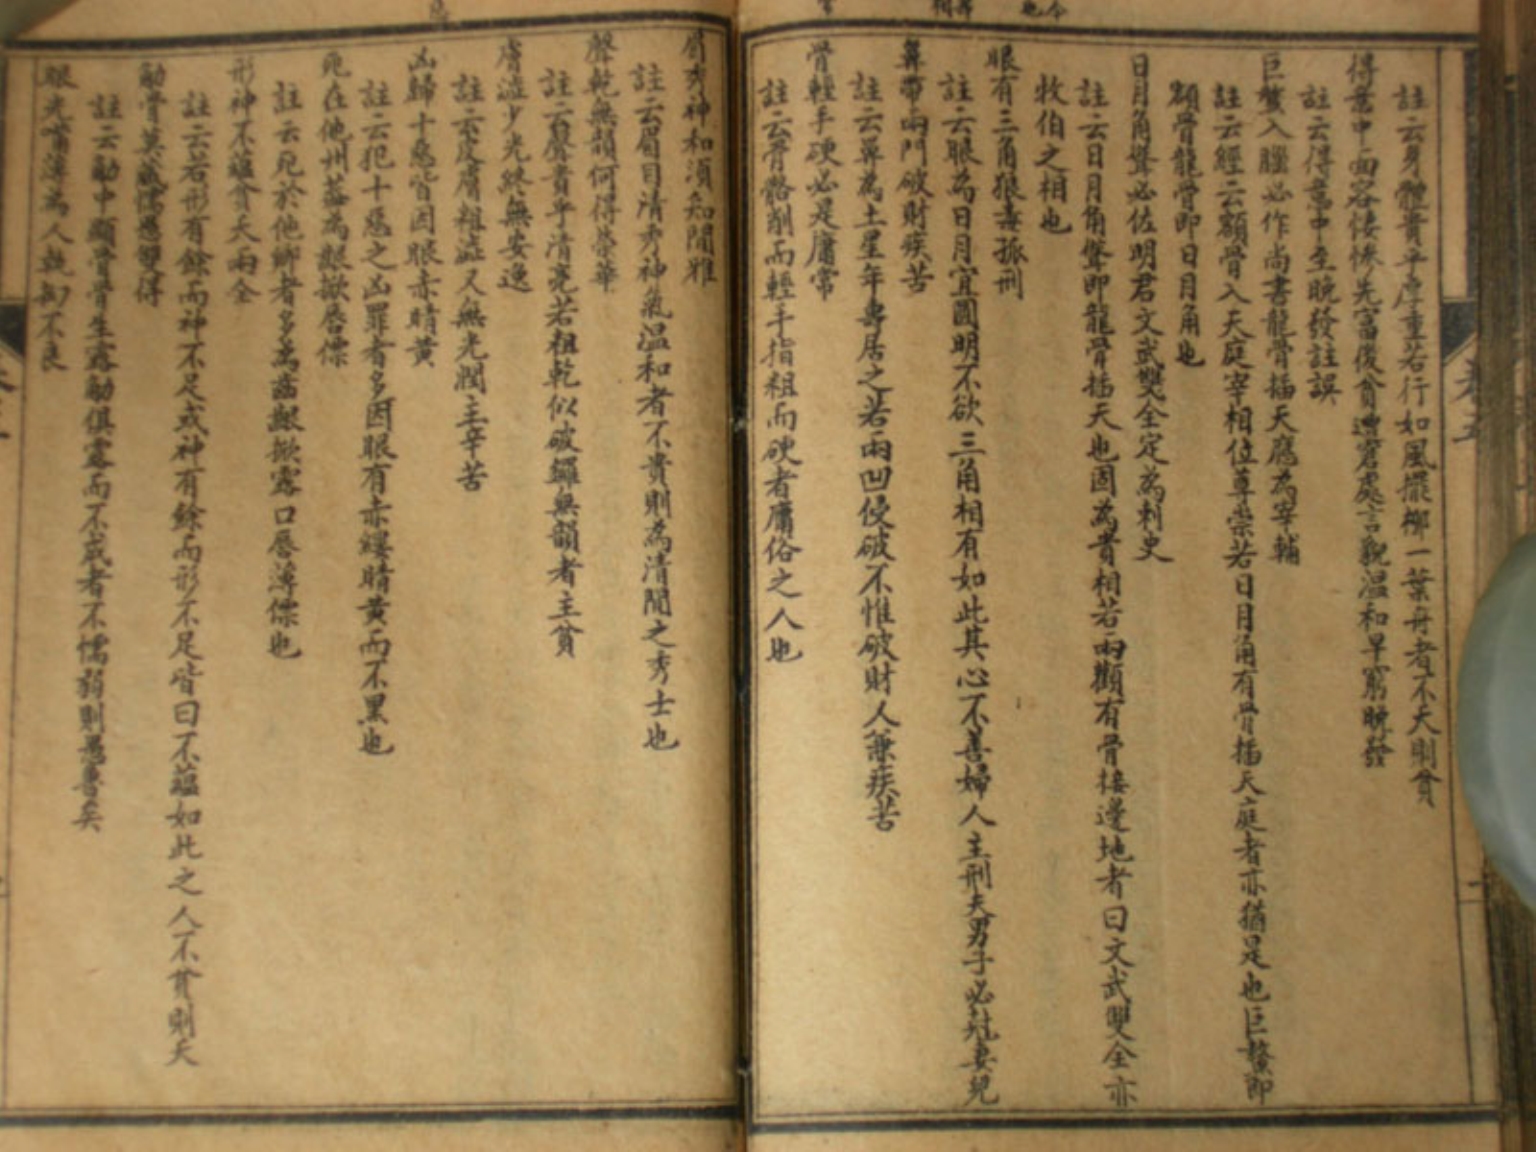 註云身體貴乎厚重若行如風擺柳一葉舟者不夭則貧
得意中面容悽慘先富後貧遭窘處言貌温和早窮晚發
註云得意中至晚發註誤
巨鰲入腦必作尚書龍骨插天應為宰輔
註云經云額骨入天庭宰相位尊崇若日月角有骨插天庭者亦猶是也巨鰲即
額骨龍骨即日月角也
日月角聳必佐明君文武雙全定為刺史
註云日月角聳即龍骨插天也固為貴相若兩顴有骨接邊地者曰文武雙全亦
牧伯之相也
眼有三角狠毒孤刑
註云眼為日月宜圓明不欲三角相有如此其心不善婦人主刑夫男子必尅妻兒
鼻帶兩凹破財疾苦
註云鼻為土星年壽居之若兩凹侵破不惟破財人兼疾苦
骨輕手硬必是庸常
註云骨骼削而輕手指粗而硬者庸俗之人也
眉秀神和須知閒雅
註云眉目清秀神氣温和者不貴則為清閒之秀士也
聲乾無韻何得榮華
註云聲貴乎清亮若粗乾似破鑼無韻者主貧
膚澁少光終無安逸
註云皮膚粗澁又無光潤主辛苦
凶歸十惡皆因眼赤睛黄
註云犯十惡之凶罪者多因眼有赤縷睛黄而不黑也
死在他州葢為齦掀唇僄
註云死於他鄉者多為齒齦掀露口唇薄僄也
形神不蘊貧夭兩全
註云若形有餘而神不足或神有餘而形不足皆曰不蘊如此之人不貧則夭
觔骨莫藏懦愚雙得
註云觔中顯骨骨生露觔俱露而不藏者不懦弱則愚魯矣
眼光嘴薄為人執拘不良